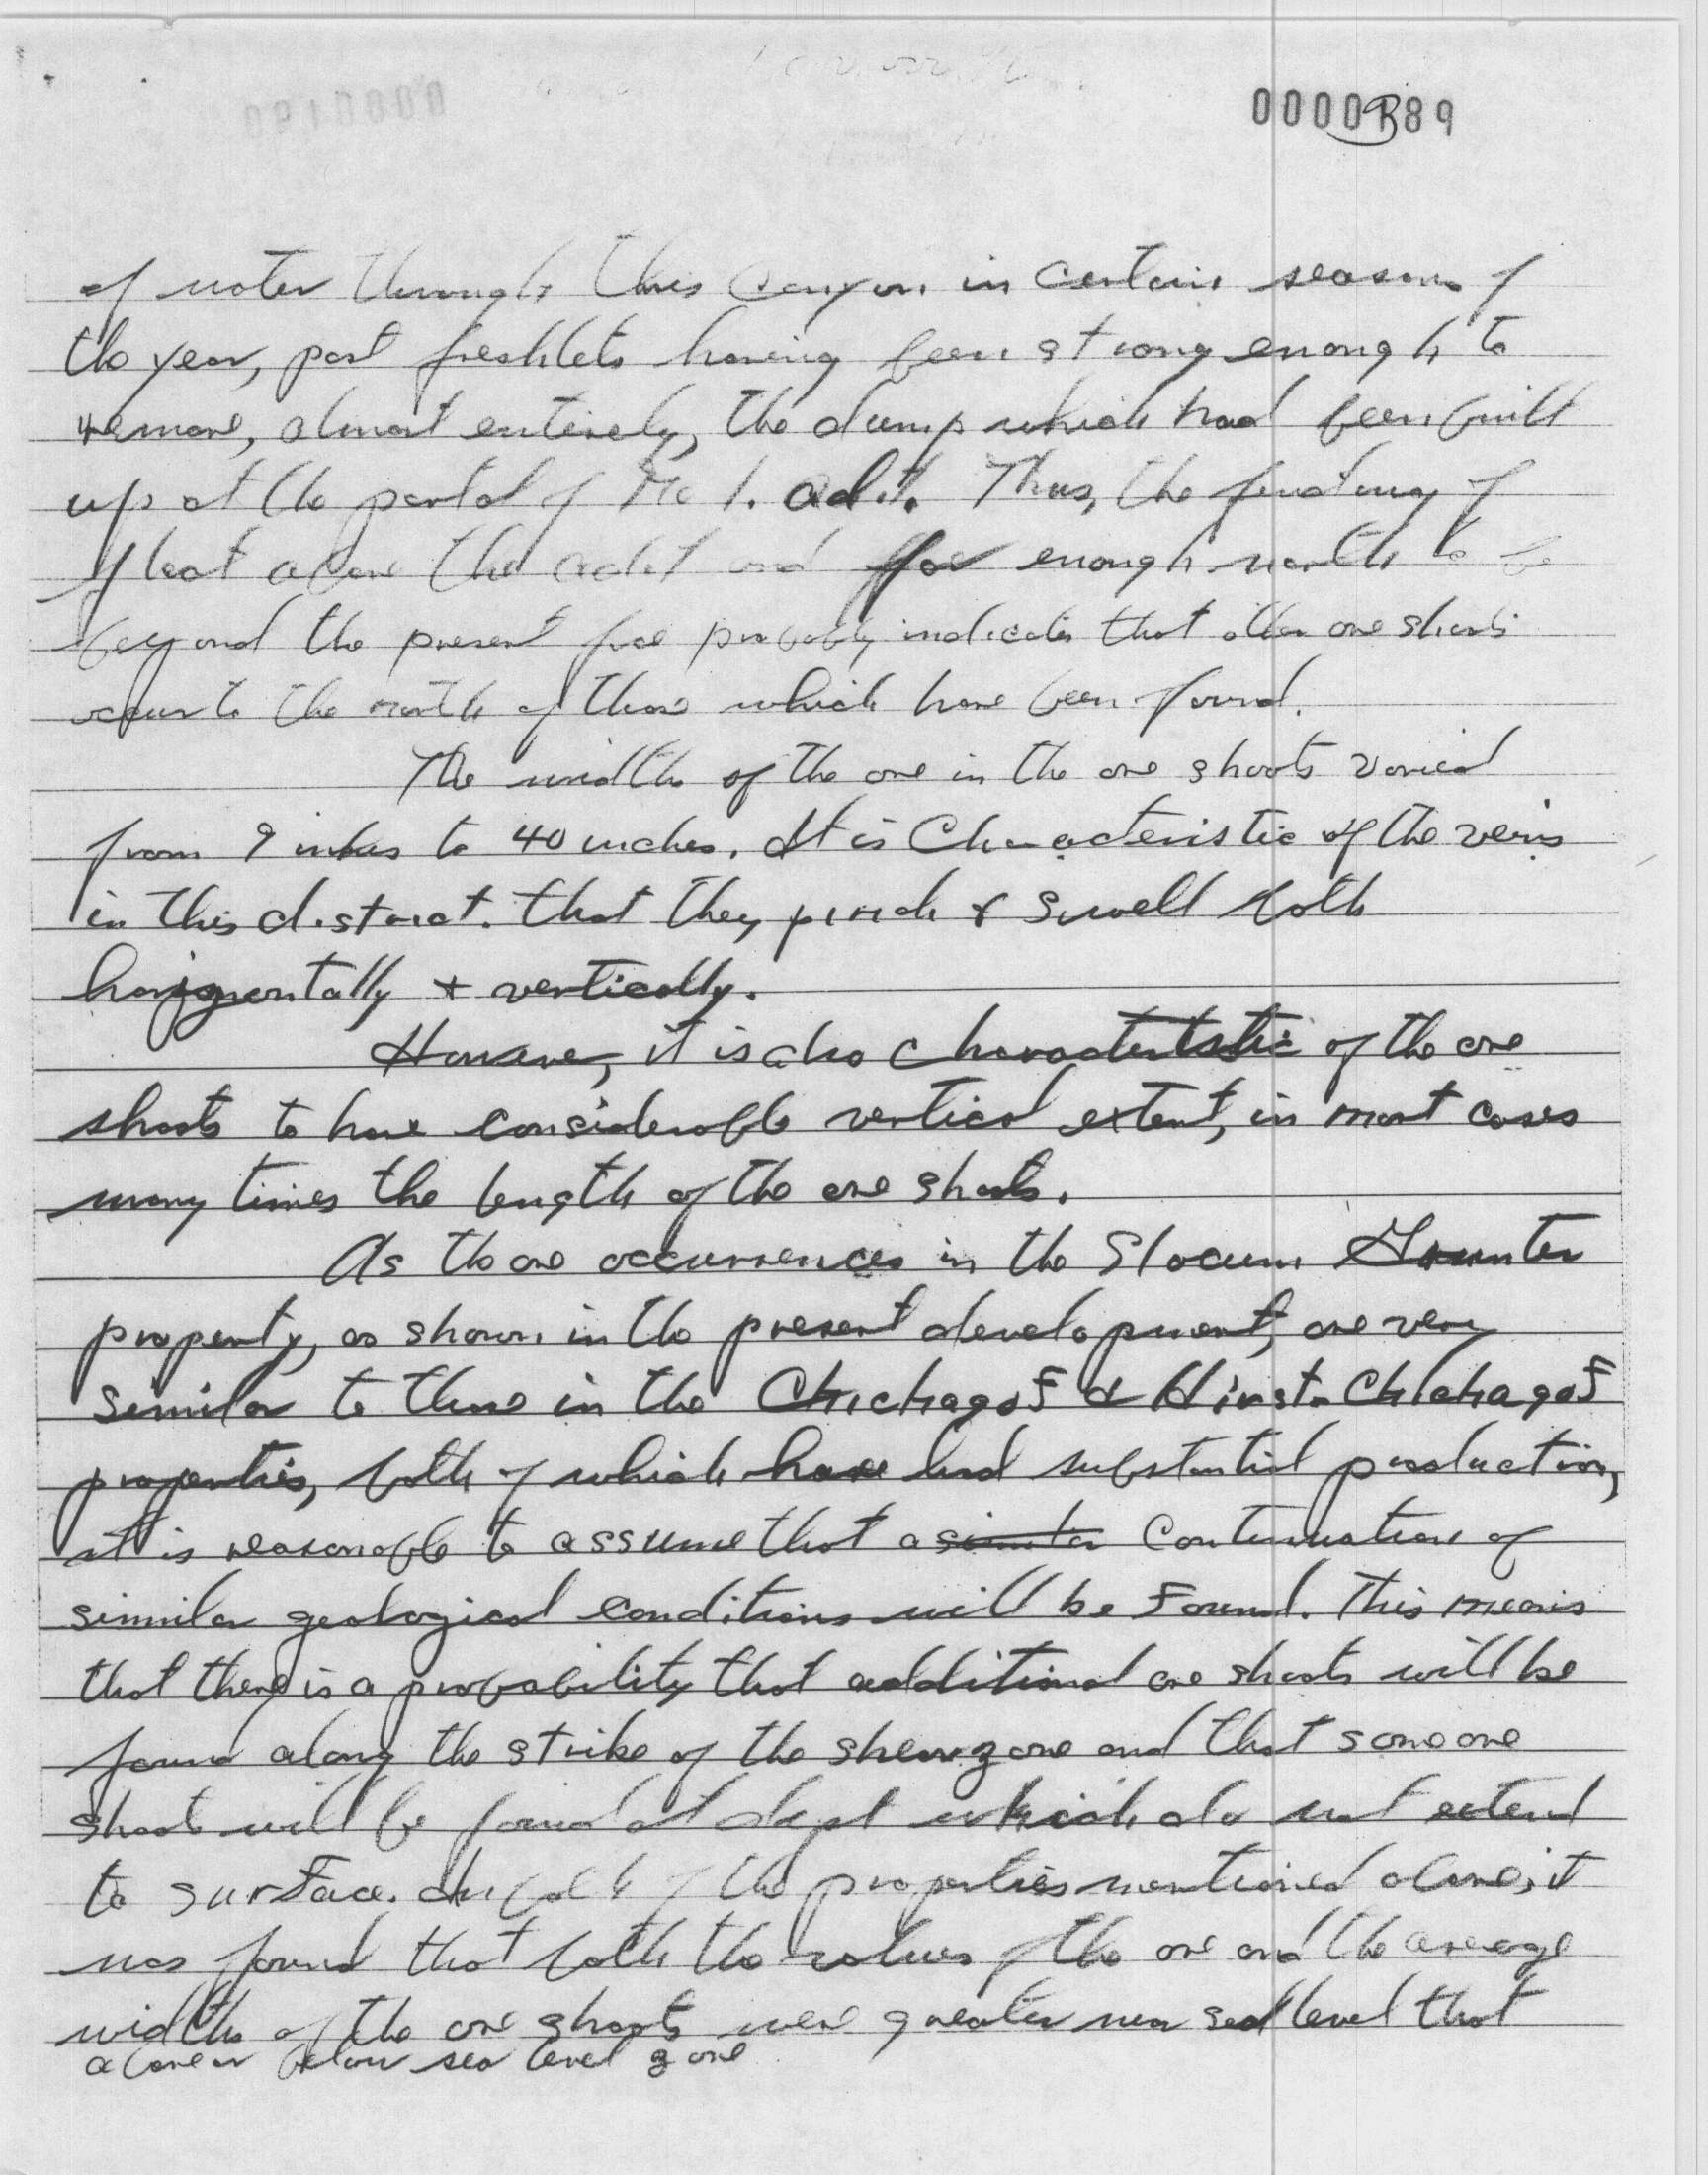 0000189
of water through this Canyon in certain seasons of
the year, past freshlets having been strong enough to
remove, almost entirely, the dump which had been built
up at the portal of No 1. adit. Thus, the finding of
float above the adit and far enough north to be
beyond the present face probably indicates that other ore shoots
occur to the north of those which have been found.
The width of the ore in the ore shoots varied
from 9 inches to 40 inches. It is Characteristic of the veins
in this district. that they pinch & swell both
horizontally & vertically.
However, it is also characteristic of the ore
shoots to have considerable vertical extent, in most cases
many times the length of the ore shoots.
As the ore occurrences in the Slocum
property, as shown in the present development, are very
similar to those in the Chichagof & Hirst-Chichagof
properties, both of which have had substantial production,
it is reasonable to assume that a similar Continuation of
similar geological conditions will be Found. This means
that there is a probability that additional ore shoots will be
found along the strike of the shear zone and that some ore
shoots will be found at dept which do not extend
to surface. In both of the properties mentioned above, it
was found that both the values of the ore and the average
width of the ore shoots were greater near sea level that
above or below sea level zone